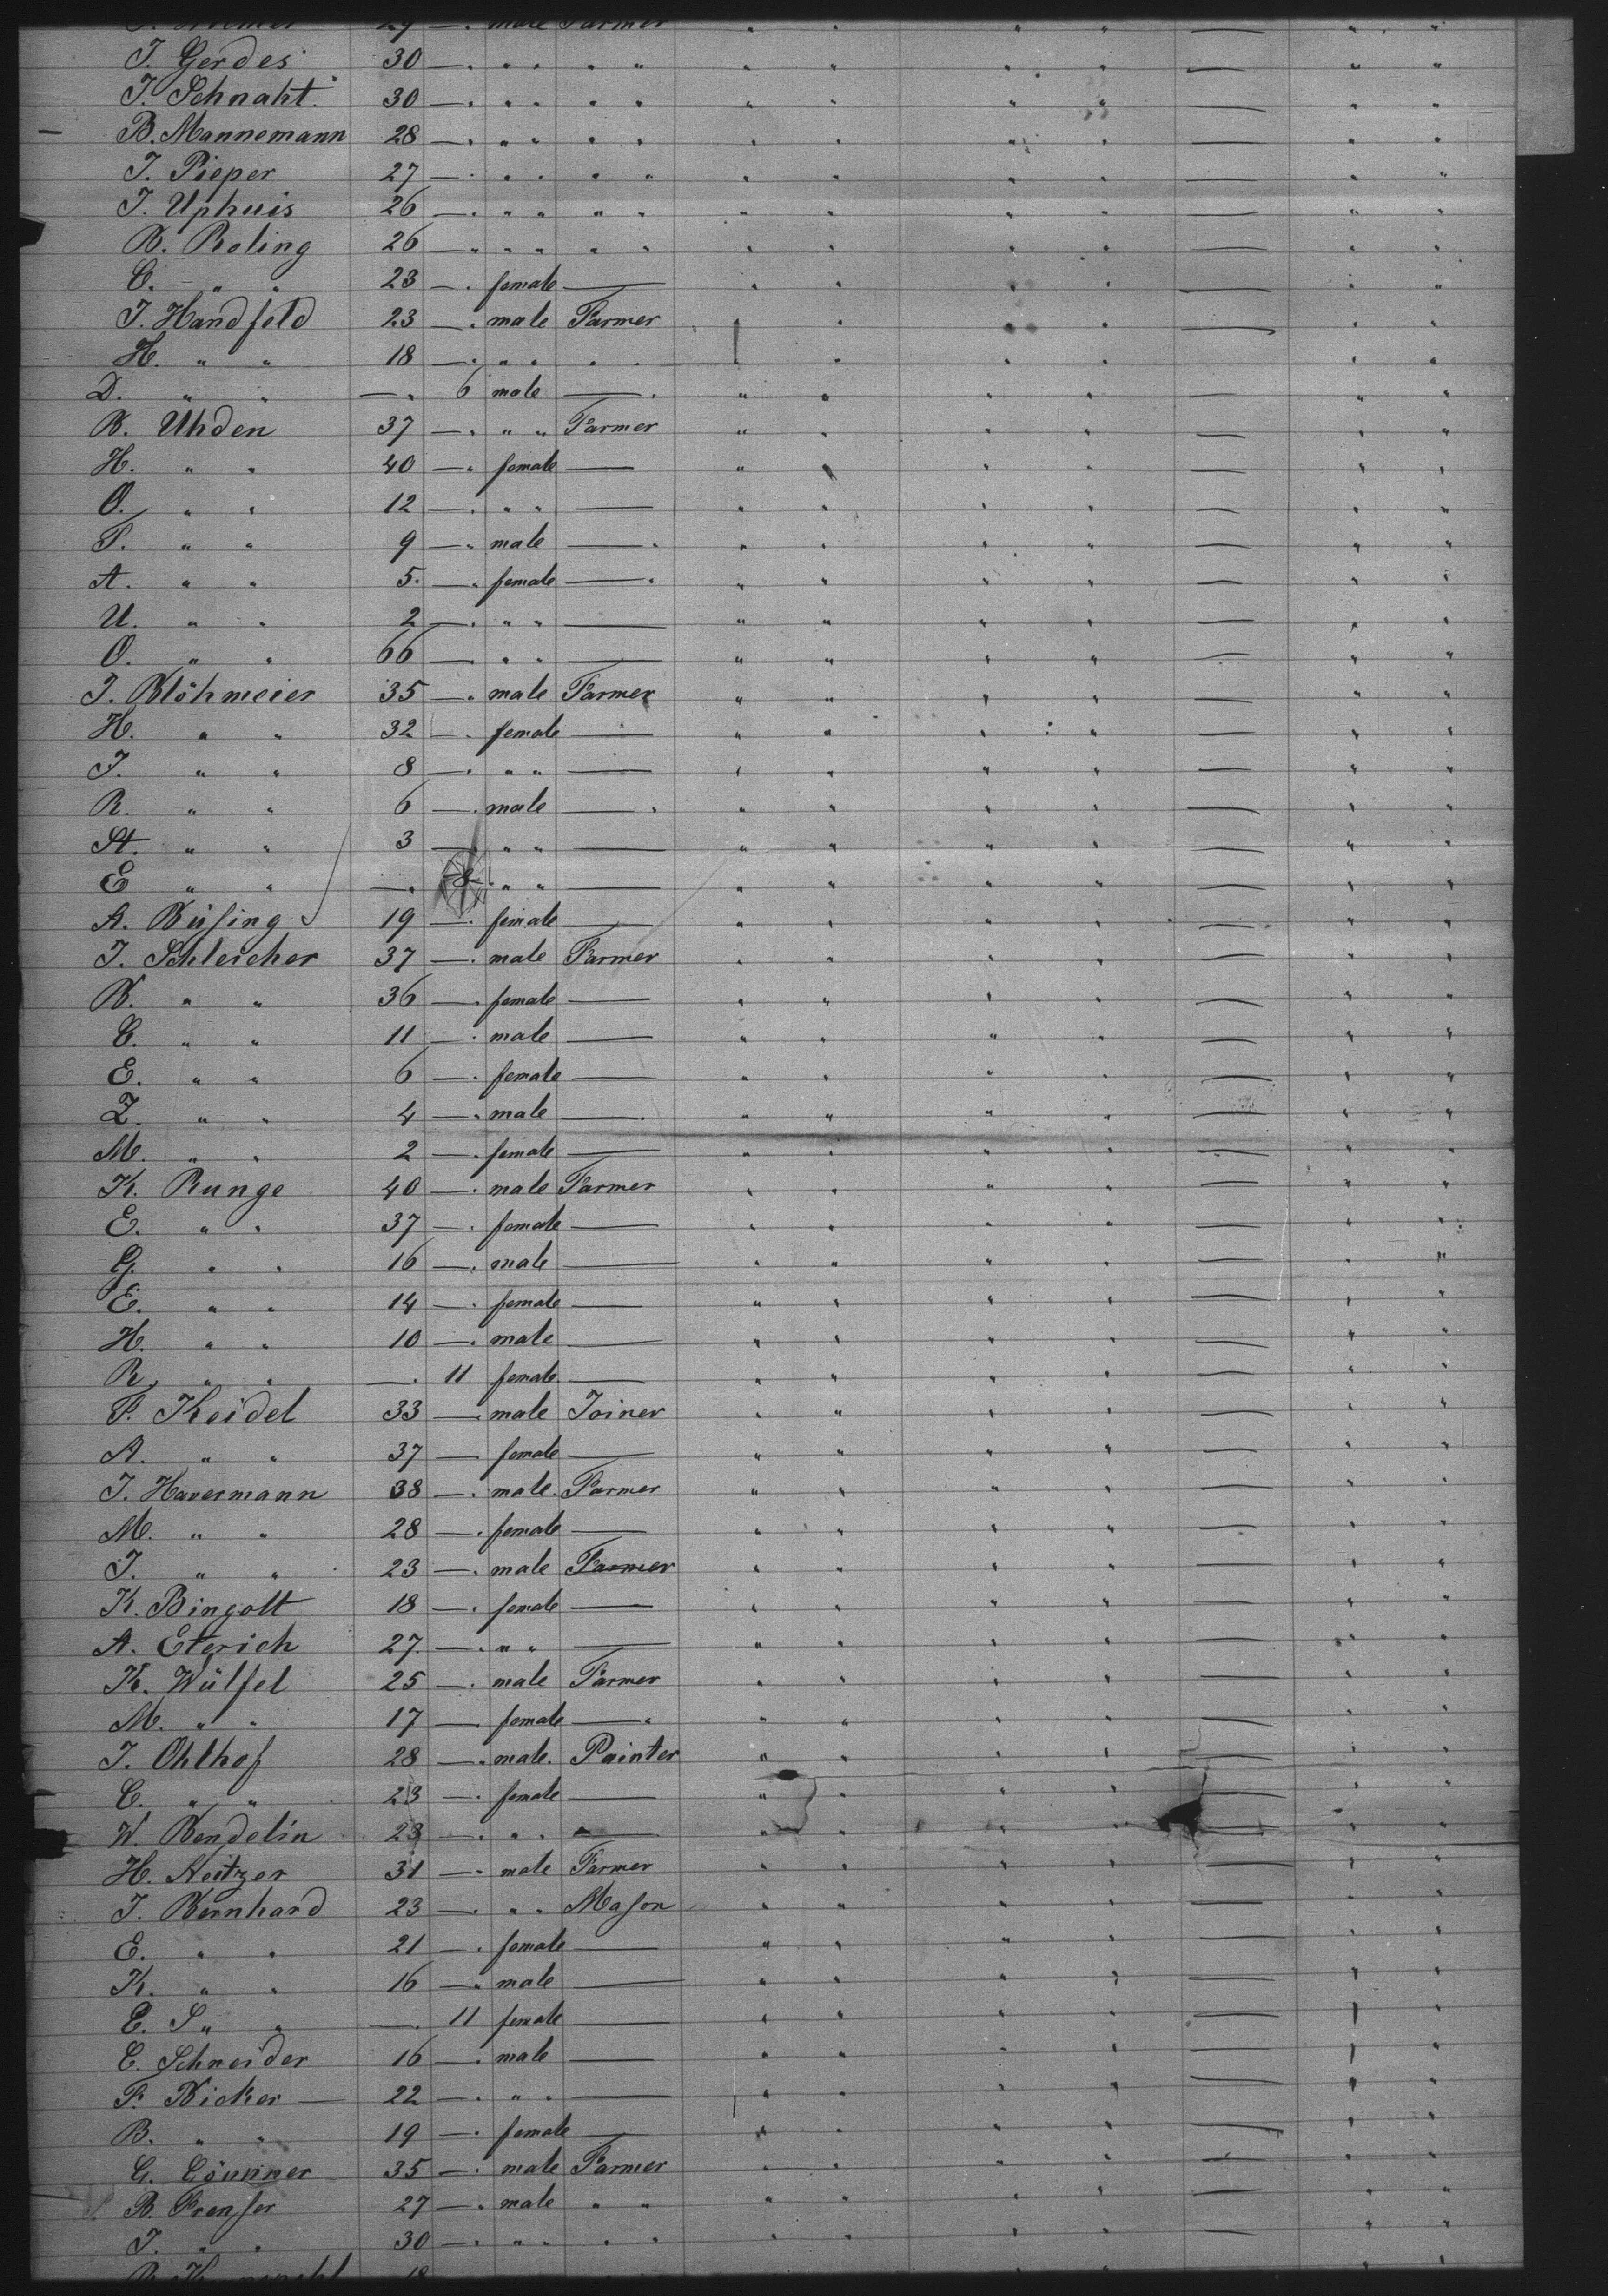 29 — " male Farmer " " " " — " "
J. Gerdes 30 — " " " " " " " " " — " "
J. Schnaht. 30 — " " " " " " " " " — " "
— B. Mannemann 28 — " " " " " " " " " — " "
J. Pieper 27 — " " " " " " " " " — " "
J. Uphuis 26 — " " " " " " " " " — " "
B. Roling 26 — " " " " " " " " " — " "
C. " " 23 — " female — " " " " — " "
J. Handfeld 23 — " male Farmer " " " " — " "
H. " " 18 — " " " " " " " " " "
D. " " — " 6 male — " " " " — " "
B. Uhden 37 — " " " Farmer " " " " — " "
H. " " 40 — " female — " " " " — " "
O. " " 12 — " " " — " " " " — " "
T. " " 9 — " male — " " " " — " "
A. " " 5. — " female — " " " " — " "
U. " " 2 — " " " — " " " " — " "
O. " " 66 — " " " — " " " " — " "
J. Blöhmeier 35 — " male Farmer " " " " — " "
H. " " 32 — " female — " " " " — " "
J. " " 8 — " " " — " " " " — " "
R. " " 6 — " male — " " " " — " "
St. " " 3 — " " " — " " " " — " "
E " " — " " " — " " " " — " "
A. Büsing 19 — " female — " " " " — " "
J. Schleicher 37 — " male Farmer " " " " — " "
B. " " 36 — " female — " " " " — " "
C. " " 11 — " male — " " " " — " "
E. " " 6 — " female — " " " " — " "
Z. " " 4 — " male — " " " " — " "
M. " " 2 — " female — " " " " — " "
K. Runge 40 — " male Farmer " " " " — " "
E. " " 37 — " female — " " " " — " "
G. " " 16 — " male — " " " " — " "
E. " " 14 — " female — " " " " — " "
H. " " 10 — " male — " " " " — " "
R. " " — " 11 female — " " " " — " "
F. Keidel 33 — " male Joiner " " " " — " "
A. " " 37 — " female — " " " " — " "
J. Havermann 38 — " male. Farmer " " " " — " "
M. " " 28 — " female — " " " " — " "
J. " " 23 — " male Farmer " " " " — " "
K. Bingolt 18 — " female — " " " " — " "
A. Eterich 27. — " " " — " " " " — " "
K. Wülfel 25 — " male Farmer " " " " — " "
M. " " 17 — " female — " " " " — " "
J. Ohlhof 28 — " male. Painter " " " " — " "
C. " " 23 — " female — " " " " — " "
W. Bendelin 23 — " " " — " " " " — " "
H. 31 — " male Farmer " " " " — " "
J. Bernhard 23 — " " " Mason " " " " — " "
E. " " 21 — " female — " " " " — " "
K. " " 16 — " male — " " " " — " "
E. S " " — " 11 female — " " " " — " "
C. Schneider 16 — " male — " " " " — " "
F. Bicker — 22 — " " " — " " " " — " "
B. " " 19 — " female — " " " " — " "
G. 35 — " male Farmer " " " " — " "
B. Frenser 27 — " male " " " " " " — " "
J. " " 30 — " " " " " " " " " — " "
18